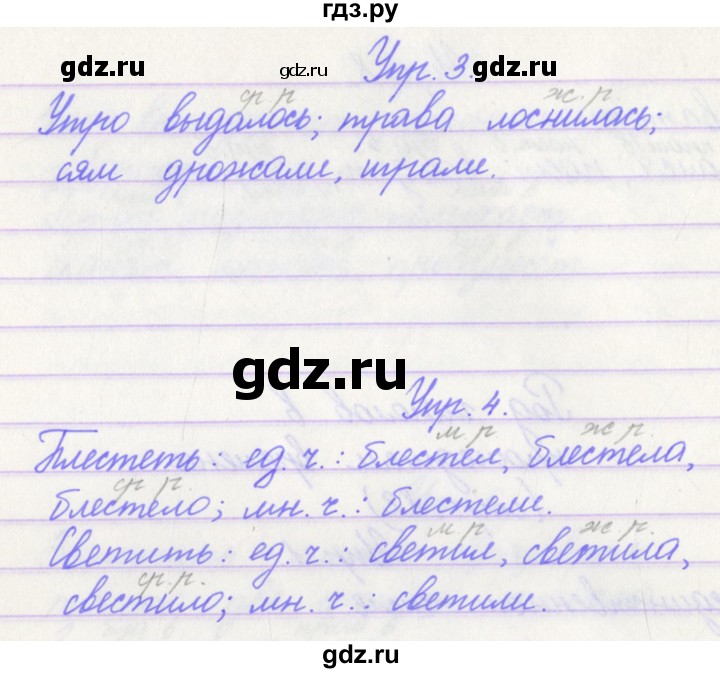 гдз.ру
gdz.ru gdz.ru Упр. 3. gdz.ru
ср. р. ж. р.
Утро выдалось; трава лоснилась;
сям дрожали, играли.
gdz.ru
Упр. 4.
м р ж р.
Блестеть: ед. ч.: блестел, блестела,
ср. р.
блестело; мн. ч.: блестели.
м. р. ж. р.
Светить: ед. ч.: светил, светила,
ср. р.
свестило; мн. ч.: светили.
gdz.ru